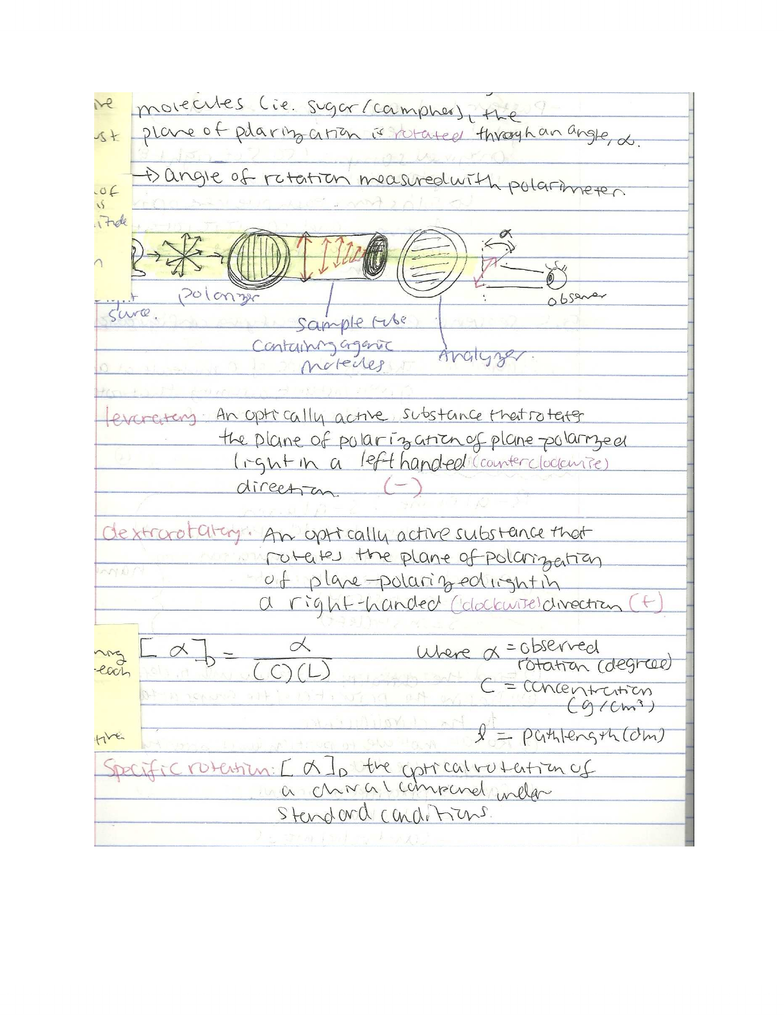 molecules (ie. sugar/camphor), the
plane of polarization is rotated through an angle, α.
→ angle of rotation measured with polarimeter.
α
observer
polarizer
source.
sample tube
containing organic
molecules
Analyzer.
levorotary: An optically active substance that rotates
the plane of polarization of plane-polarized
light in a left handed (counterclockwise)
direction. (-)
dextrorotatory: An optically active substance that
rotates the plane of polarization
of plane-polarized light in
a right-handed (clockwise) direction (+)
[α]D = α / (C)(L)
where α = observed
rotation (degree)
C = concentration
(g/cm³)
l = pathlength (dm)
each
Specific rotation: [α]D the optical rotation of
a chiral compound under
standard conditions.